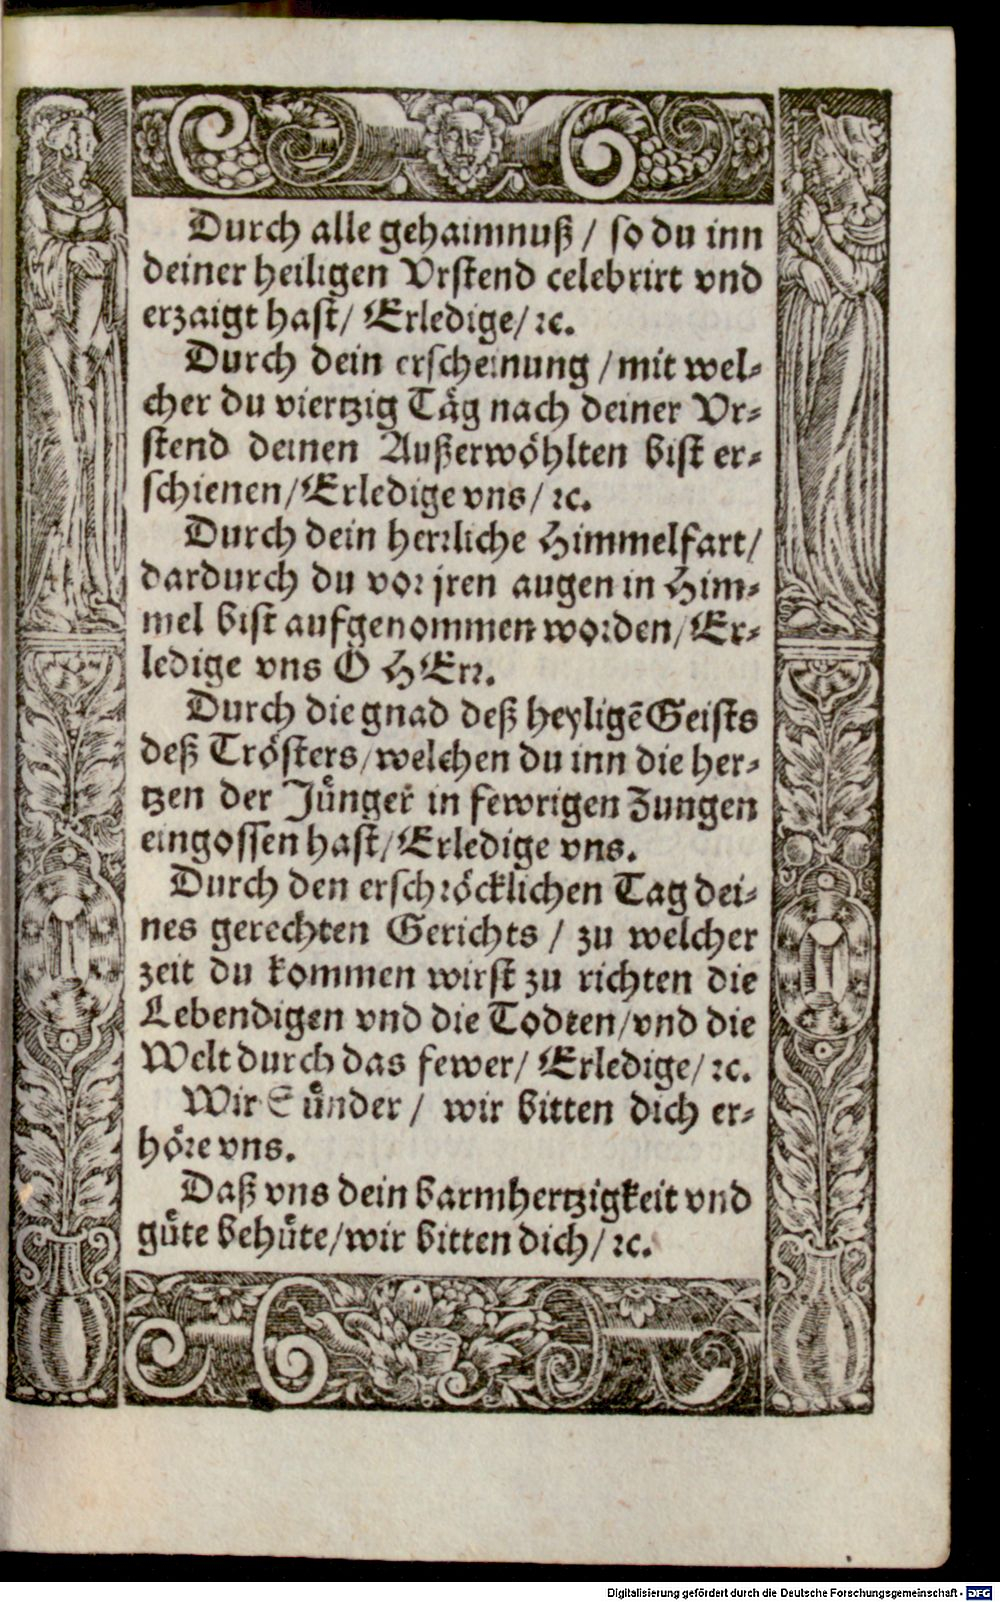 Durch alle gehaimnuß / so du inn
deiner heiligen Vrstend celebrirt vnd
erzaigt hast / Erledige / ꝛc.
Durch dein erscheinung / mit wel-
cher du viertzig Täg nach deiner Vr-
stend deinen Außerwöhlten bist er-
schienen / Erledige vns / ꝛc.
Durch dein herrliche Himmelfart /
dardurch du vor jren augen in Him-
mel bist aufgenommen worden / Er-
ledige vns O HErr.
Durch die gnad deß heyligē Geists
deß Trösters / welchen du inn die her-
tzen der Jünger in fewrigen Zungen
eingossen hast / Erledige vns.
Durch den erschröcklichen Tag dei-
nes gerechten Gerichts / zu welcher
zeit du kommen wirst zu richten die
Lebendigen vnd die Todten / vnd die
Welt durch das fewer / Erledige / ꝛc.
Wir Sünder / wir bitten dich er-
höre vns.
Daß vns dein barmhertzigkeit vnd
güte behüte / wir bitten dich / ꝛc.
Digitalisierung gefördert durch die Deutsche Forschungsgemeinschaft - DFG